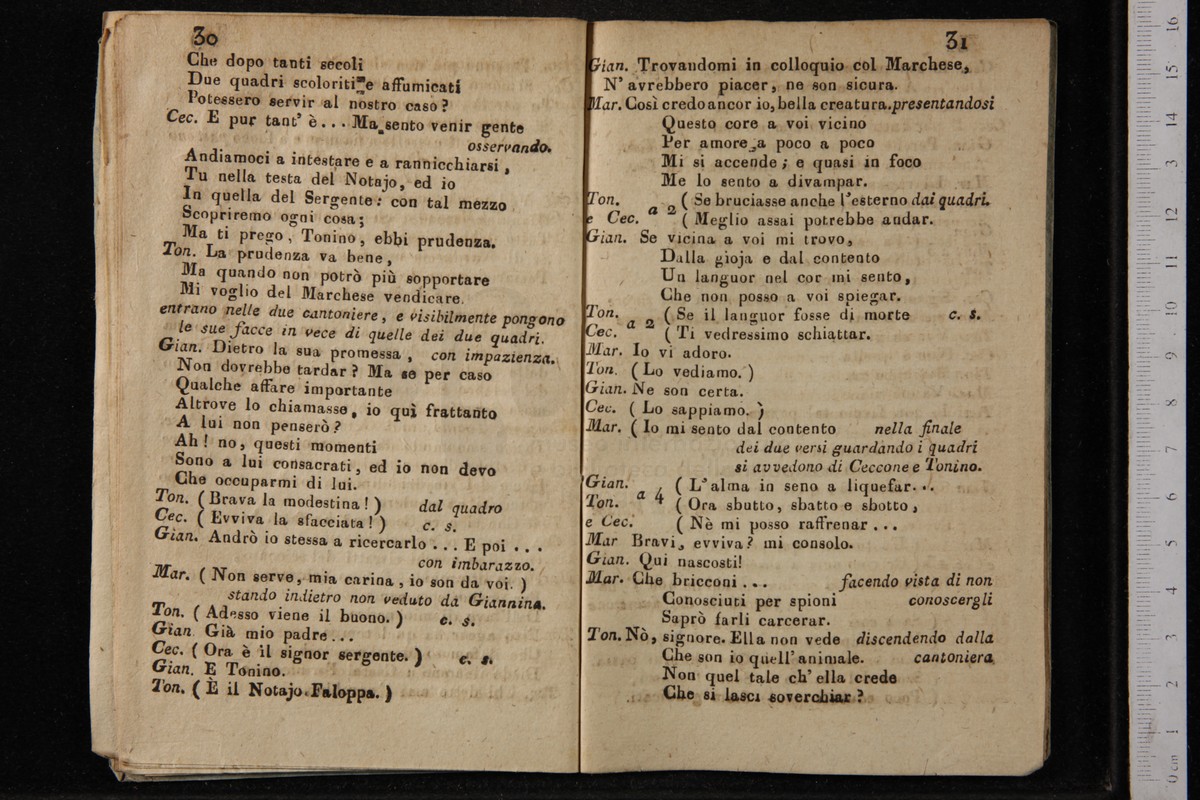 30
Che dopo tanti secoli
Due quadri scoloriti e affumicati
Potessero servir al nostro caso?
Cec. E pur tant' è... Ma sento venir gente
osservando.
Andiamoci a intestare e a rannicchiarsi,
Tu nella testa del Notajo, ed io
In quella del Sergente: con tal mezzo
Scopriremo ogni cosa;
Ma ti prego, Tonino, ebbi prudenza.
Ton. La prudenza va bene,
Ma quando non potrò più sopportare
Mi voglio del Marchese vendicare.
entrano nelle due cantoniere, e visibilmente pongono
le sue facce in vece di quelle dei due quadri.
Gian. Dietro la sua promessa, con impazienza.
Non dovrebbe tardar? Ma se per caso
Qualche affare importante
Altrove lo chiamasse, io quì frattanto
A lui non penserò?
Ah! no, questi momenti
Sono a lui consacrati, ed io non devo
Che occuparmi di lui.
Ton. (Brava la modestina!) dal quadro
Cec. (Evviva la sfacciata!) c. s.
Gian. Andrò io stessa a ricercarlo... E poi...
con imbarazzo.
Mar. (Non serve, mia carina, io son da voi.)
stando indietro non veduto da Giannina.
Ton. (Adesso viene il buono.) c. s.
Gian. Già mio padre...
Cec. (Ora è il signor sergente.) c. s.
Gian. E Tonino.
Ton. (È il Notajo Faloppa.)
31
Gian. Trovandomi in colloquio col Marchese,
N' avrebbero piacer, ne son sicura.
Mar. Così credo ancor io, bella creatura. presentandosi
Questo core a voi vicino
Per amore a poco a poco
Mi si accende; e quasi in foco
Me lo sento a divampar.
Ton. (Se bruciasse anche l'esterno dai quadri.
e Cec. a 2 (Meglio assai potrebbe andar.
Gian. Se vicina a voi mi trovo,
Dalla gioja e dal contento
Un languor nel cor mi sento,
Che non posso a voi spiegar.
Ton. a 2 (Se il languor fosse di morte c. s.
Cec. (Ti vedressimo schiattar.
Mar. Io vi adoro.
Ton. (Lo vediamo.)
Gian. Ne son certa.
Cec. (Lo sappiamo.)
Mar. (Io mi sento dal contento nella finale
dei due versi guardando i quadri
si avvedono di Ceccone e Tonino.
Gian. (L'alma in seno a liquefar...
Ton. a 4 (Ora sbutto, sbatto e sbotto,
e Cec. (Nè mi posso raffrenar...
Mar Bravi, evviva? mi consolo.
Gian. Qui nascosti!
Mar. Che bricconi... facendo vista di non
Conosciuti per spioni conoscergli
Saprò farli carcerar.
Ton. Nò, signore. Ella non vede discendendo dalla
Che son io quell' animale. cantoniera
Non quel tale ch' ella crede
Che si lasci soverchiar?
0 cm 1 2 3 4 5 6 7 8 9 10 11 12 13 14 15 16